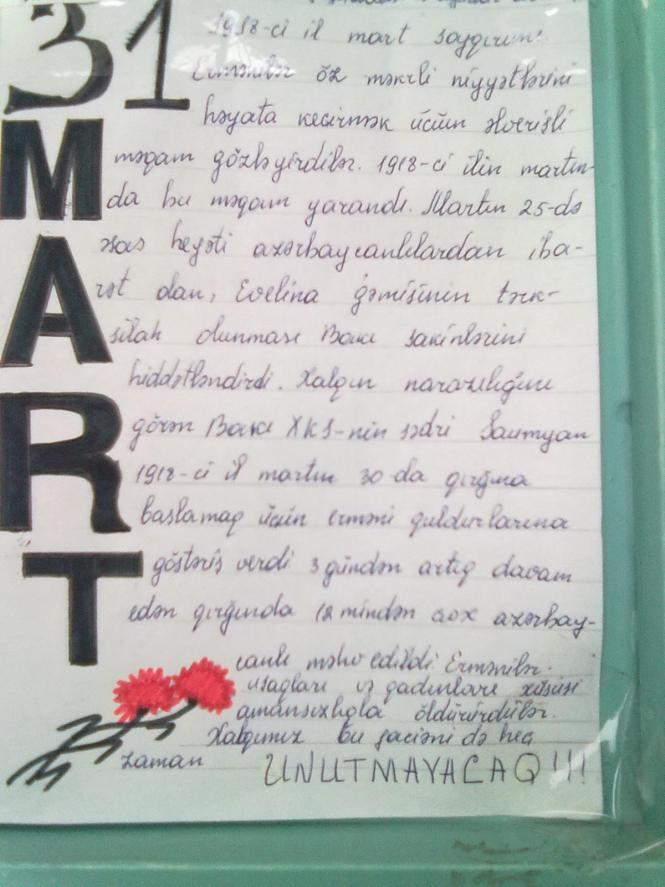 31
MART
1918-ci il mart soyqırımı
Ermənilər öz məkrli niyyətlərini
həyata kecirmək ücün əlverişli
məqam gözləyirdilər. 1918-ci ilin martın-
da bu məqam yarandı. Martın 25-də
əsas heyəti azərbaycanlılardan iba-
rət dan, Evelina gəmisinin tərk-
silah olunması Bakı sakinlərini
hiddətləndirdi. Xalqın narazılığını
görən Bakı XKS-nin sədri Saumyan
1918-ci il martın 30-da qırğına
baslamaq ücün erməni quldurlarına
göstəris verdi 3 gündən artıq davam
edən qırğında 12 mindən cox azərbay-
canlı məhv edildi. Ermənilər
usaqları və qadınları xüsusi
amansızlıqla öldürürdülər.
Xalqımız bu faciəni də hec
zaman UNUTMAYACAQ!!!